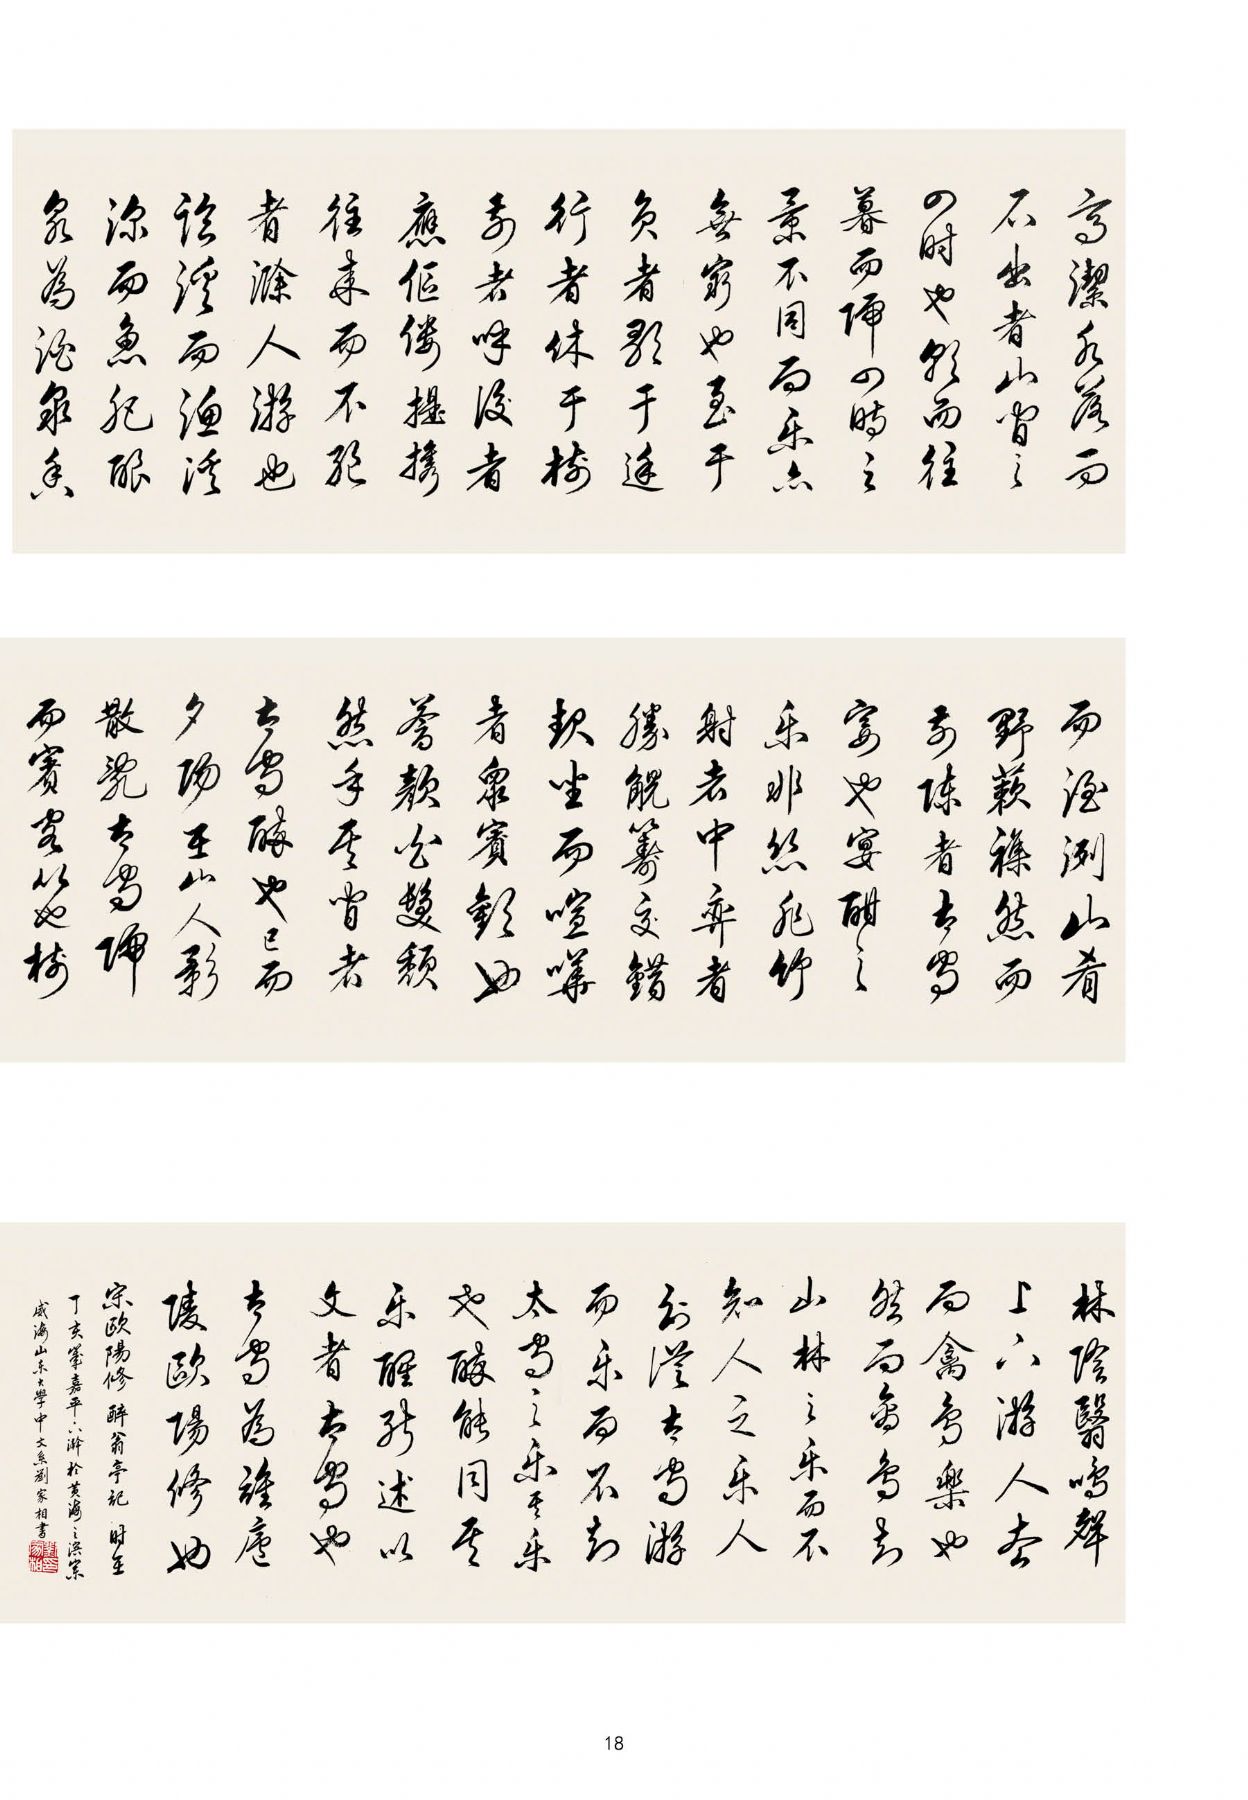 高潔水落而
石出者山間之
四时也朝而往
暮而歸四時之
景不同而乐亦
無窮也至于
负者歌于途
行者休于樹
前者呼後者
應傴僂提攜
往来而不絶
者滁人游也
臨溪而漁溪
深而魚肥釀
泉為酒泉香
而酒洌山肴
野蔌雜然而
前陳者太守
宴也宴酣之
乐非丝非竹
射者中弈者
勝觥籌交錯
起坐而喧嘩
者衆賓歡也
蒼顏白髮頹
然乎其間者
太守醉也已而
夕陽在山人影
散亂太守歸
而賓客从也樹
林陰翳鳴聲
上下游人去
而禽鳥樂也
然而禽鳥知
山林之乐而不
知人之乐人
知從太守游
而乐而不知
太守之乐其乐
也醉能同其
乐醒能述以
文者太守也
太守為誰廬
陵歐陽修也
宋歐陽修醉翁亭記 时至
丁亥嘉平於黄海之濱
威海山东大學中文系劉家相書
18